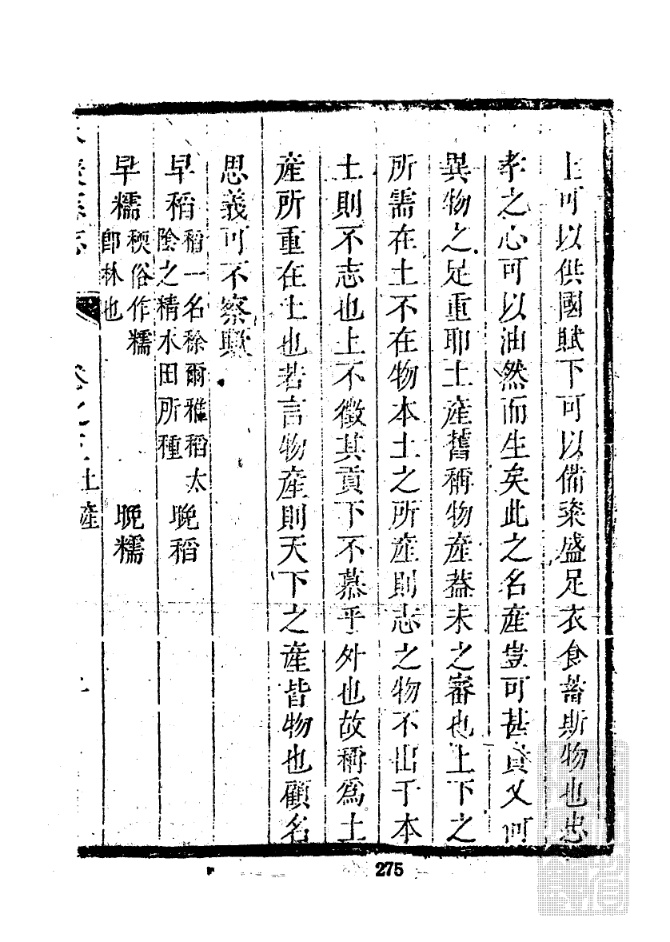 上可以供國賦下可以備粢盛足衣食蓄斯物也忠
孝之心可以油然而生矣此之名產豈可甚貴又何
異物之足重耶土產舊稱物產葢未之審也上下之
所需在土不在物本土之所產則志之物不出于本
土則不志也上不徵其貢下不慕乎外也故稱為土
產所重在土也若言物產則天下之產皆物也顧名
思義可不察歟
早稻 稻一名稌爾雅稻太
陰之精水田所種 晚稻
早糯 稬俗作糯
即秫也 晚糯
縣志 卷之三土產
275